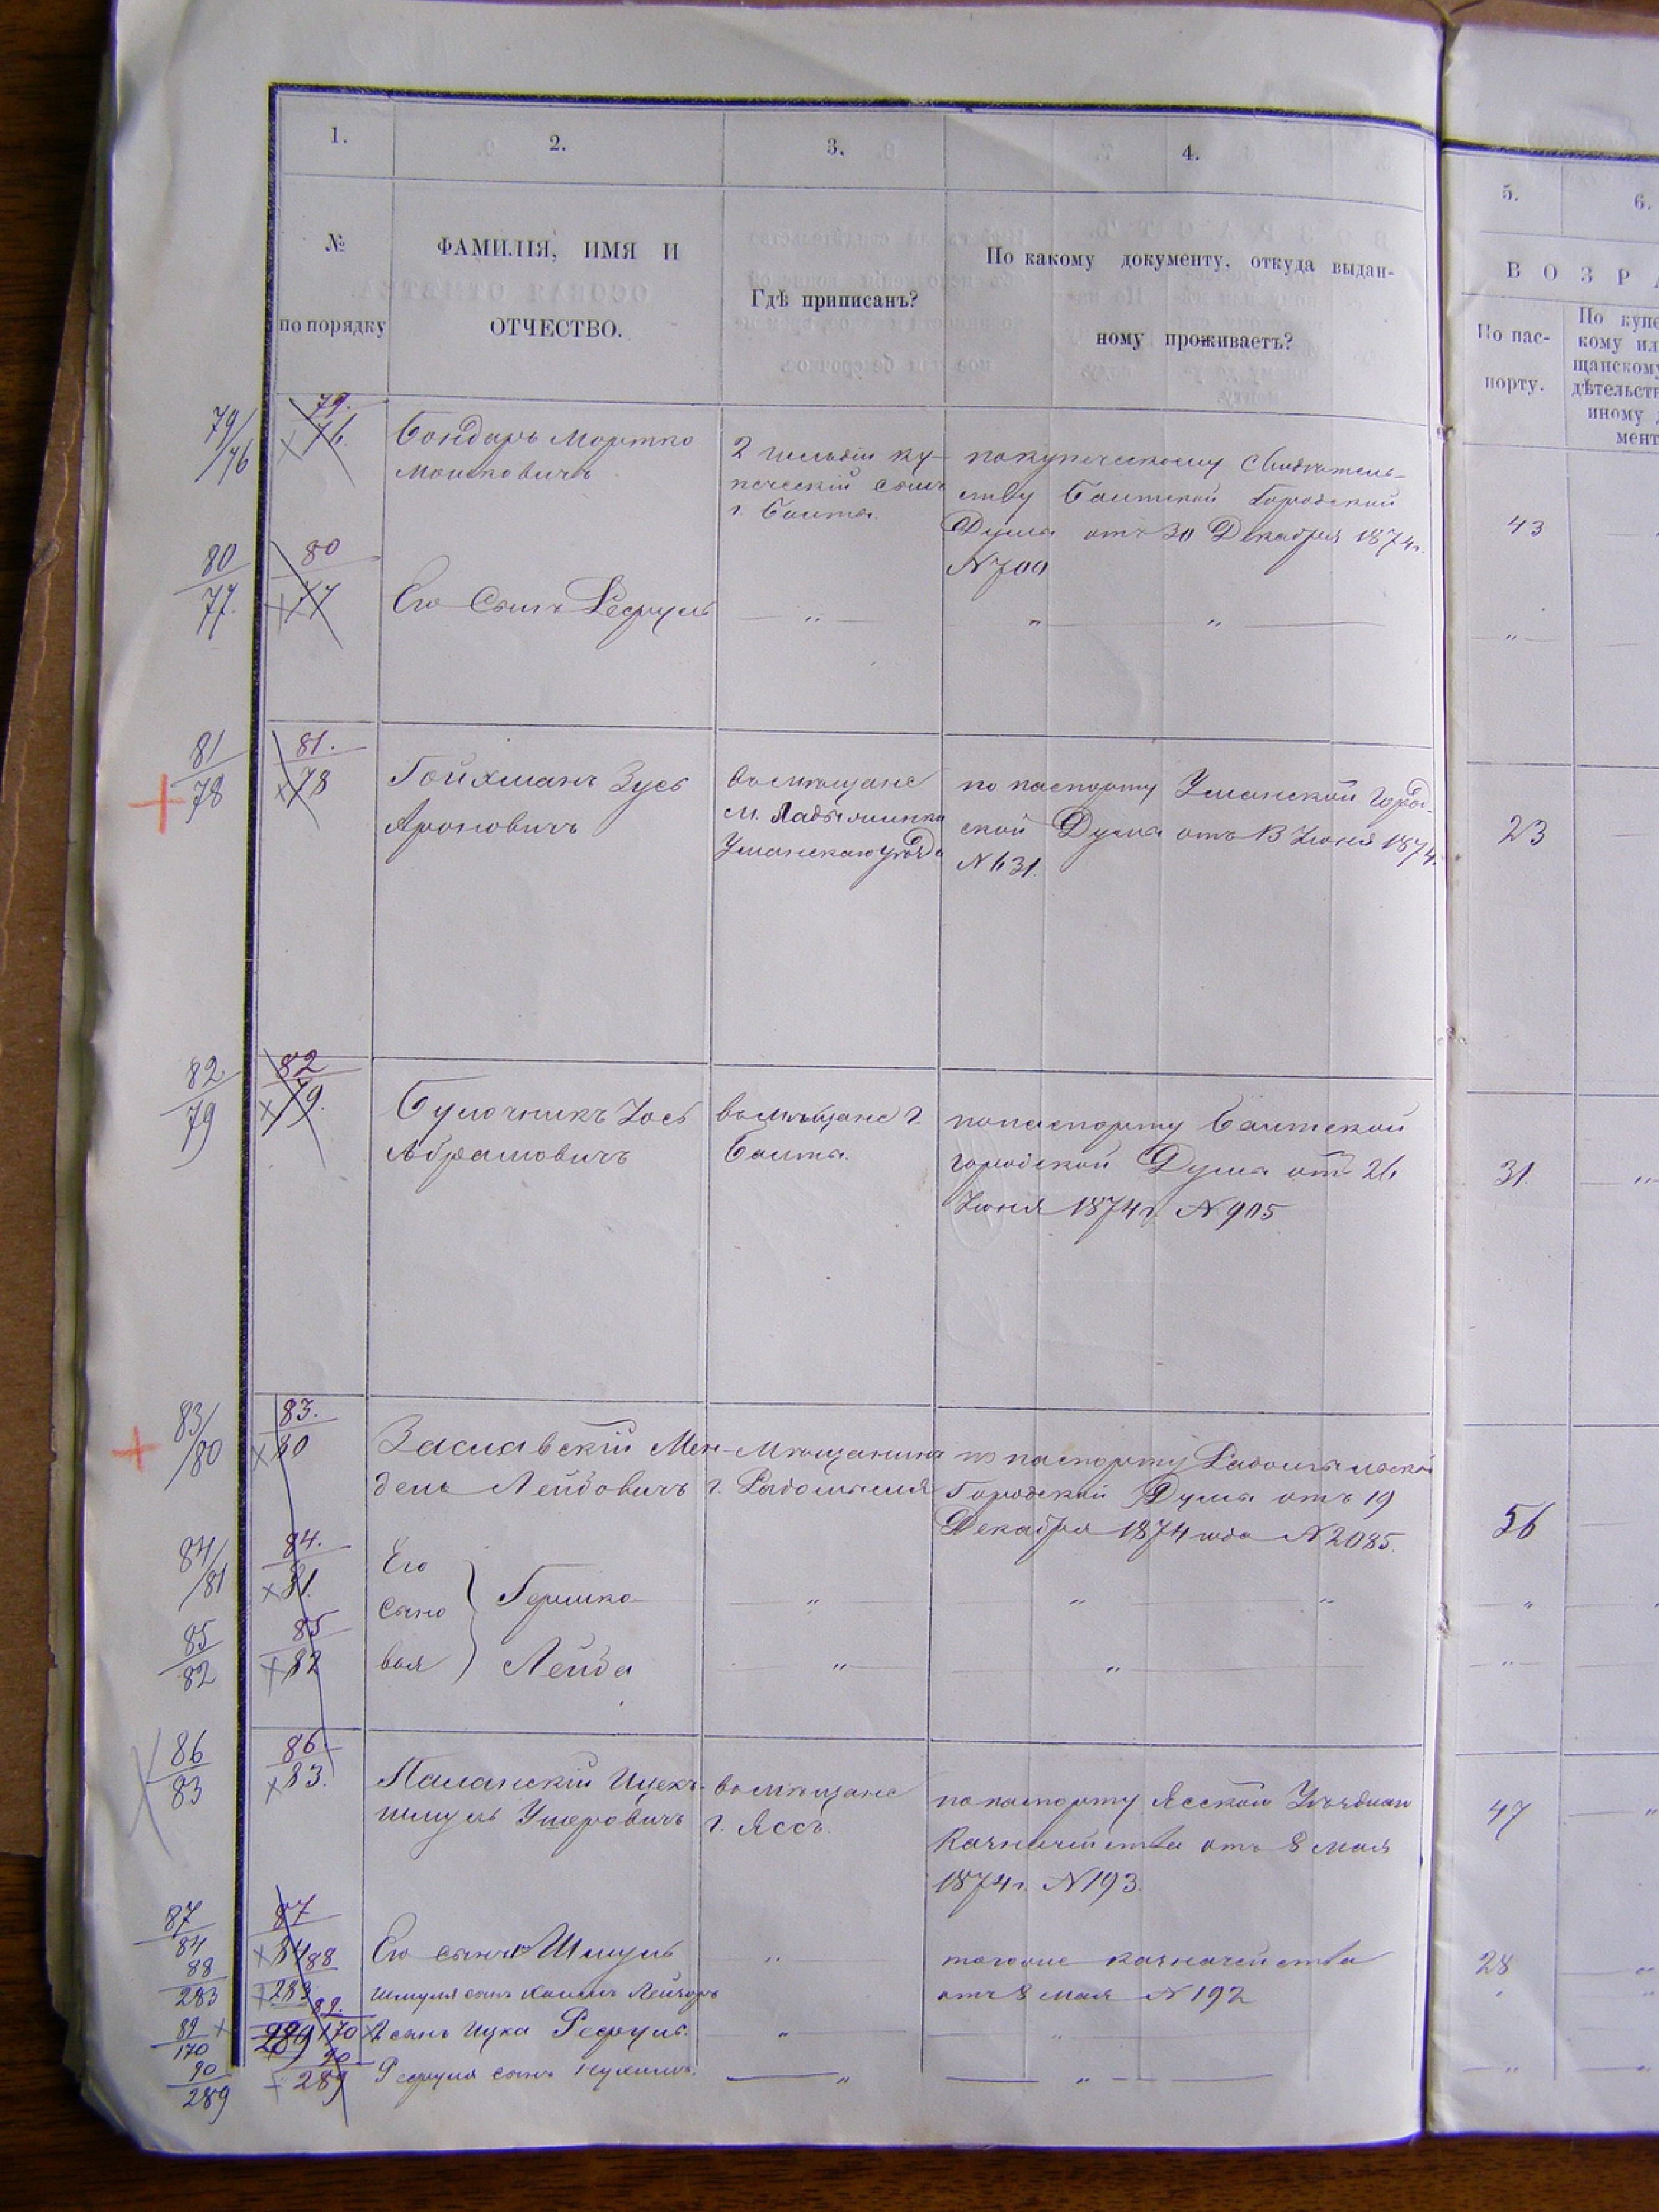 1. 2. 3. 4. 5. 6.
№ по порядку
ФАМИЛІЯ, ИМЯ И
ОТЧЕСТВО.
Гдѣ приписанъ?
По какому документу, откуда выдан-
ному проживаетъ?
ВОЗРА
По пас-
порту.
По купе
кому ил
щанскому
дѣтельств
иному д
мент
79/76 79. 76.
Бондарь Мортко
Мошковичъ
2 гильдіи ку-
печескій сынъ
г. Балта.
по купеческому свидѣтель-
ству Балтской Городской
Думы отъ 30 Декабря 1874г.
N 700
43
80/77. 80 77
Его Сынъ Рефуль
81/78 81. 78
Гойхманъ Зусь
Ароновичъ
въ мѣщане
м. Ладыжинка
Уманскаго уѣзда
по паспорту Уманской Город-
ской Думы отъ 13 Июня 1874.
N 631.
23
82/79 82 79.
Булочникъ Іось
Абрамовичъ
въ мѣщане г.
Балта.
по паспорту Балтской
городской Думы отъ 26
Июня 1874г. N 905
31.
83/80 83. 80
Заславскій Мен-
дель Лейбовичъ
Мѣщанинъ
г. Радомысля
по паспорту Радомысльской
Городской Думы отъ 19
Декабря 1874 года N 2085.
56
84/81 84. 81.
85/82 85 82
Его
сыно
вья
Гершко
Лейба
86/83 86. 83.
Паланскій Ицекъ-
Шмуль Ушеровичъ
въ мѣщане
г. Яссъ.
по паспорту Ясской Уѣздной
Казначейства отъ 8 Мая
1874г. N 193.
47
87/84 87 84
Его сынъ Шмуль
тогоже казначейства
отъ 8 мая N 192
28
88/283 88 283
Шмуля сынъ
89/170 89. 170
2 сынъ Ицка Рефуль.
90/289 90 289
Рефуля сынъ